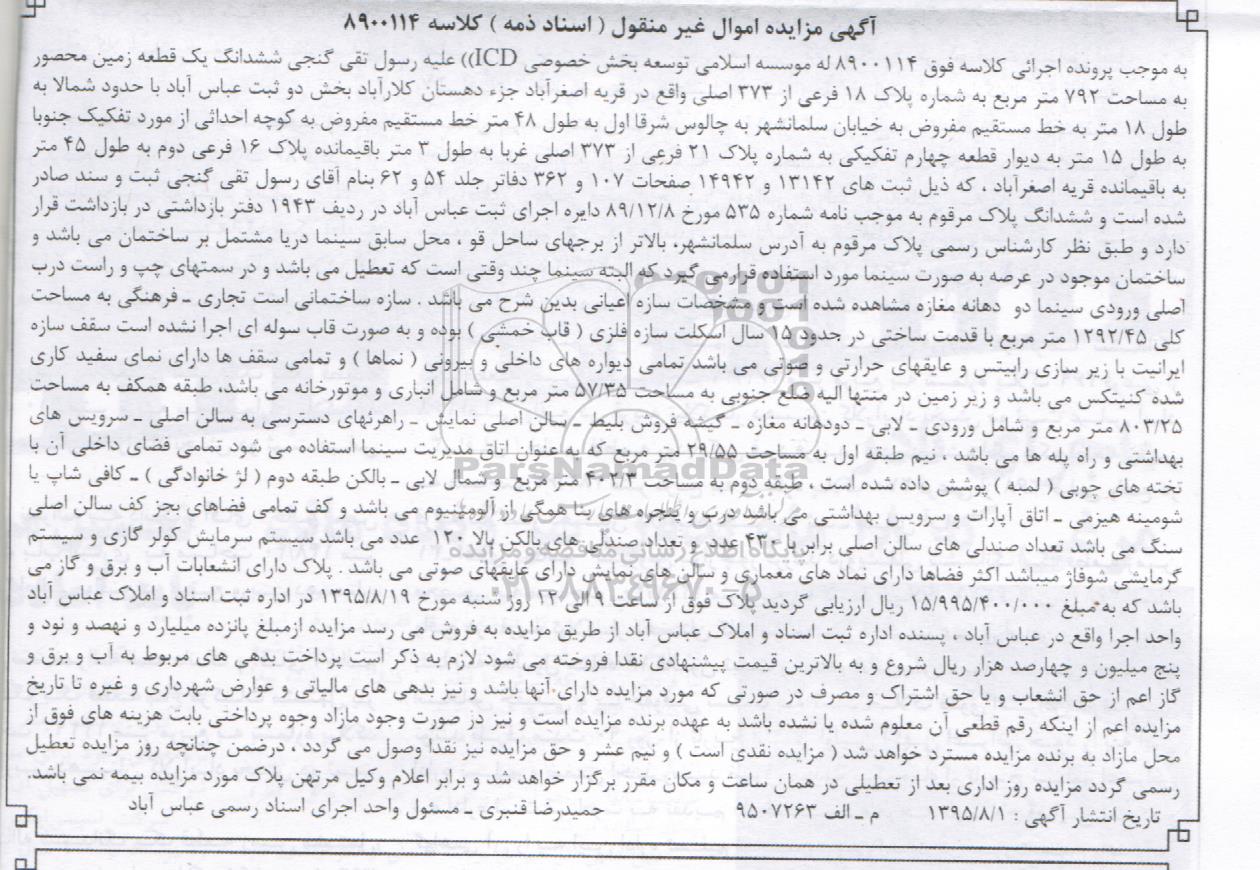 آگهی مزایده اموال غیر منقول ( اسناد ذمه ) کلاسه ۸۹۰۰۱۱۴
به موجب پرونده اجرائی کلاسه فوق ۸۹۰۰۱۱۴ له موسسه اسلامی توسعه بخش خصوصی ICD)) علیه رسول تقی گنجی ششدانگ یک قطعه زمین محصور
به مساحت ۷۹۲ متر مربع به شماره پلاک ۱۸ فرعی از ۳۷۳ اصلی واقع در قریه اصغرآباد جزء دهستان کلارآباد بخش دو ثبت عباس آباد با حدود شمالا به
طول ۱۸ متر به خط مستقیم مفروض به خیابان سلمانشهر به چالوس شرقا اول به طول ۴۸ متر خط مستقیم مفروض به کوچه احداثی از مورد تفکیک جنوبا
به طول ۱۵ متر به دیوار قطعه چهارم تفکیکی به شماره پلاک ۲۱ فرعی از ۳۷۳ اصلی غربا به طول ۳ متر باقیمانده پلاک ۱۶ فرعی دوم به طول ۴۵ متر
به باقیمانده قریه اصغرآباد ، که ذیل ثبت های ۱۳۱۴۲ و ۱۴۹۴۲ صفحات ۱۰۷ و ۳۶۲ دفاتر جلد ۵۴ و ۶۲ بنام آقای رسول تقی گنجی ثبت و سند صادر
شده است و ششدانگ پلاک مرقوم به موجب نامه شماره ۵۳۵ مورخ ۸۹/۱۲/۸ دایره اجرای ثبت عباس آباد در ردیف ۱۹۴۳ دفتر بازداشتی در بازداشت قرار
دارد و طبق نظر کارشناس رسمی پلاک مرقوم به آدرس سلمانشهر، بالاتر از برجهای ساحل قو ، محل سابق سینما دریا مشتمل بر ساختمان می باشد و
ساختمان موجود در عرصه به صورت سینما مورد استفاده قرارمی گیرد که البته سینما چند وقتی است که تعطیل می باشد و در سمتهای چپ و راست درب
اصلی ورودی سینما دو دهانه مغازه مشاهده شده است و مشخصات سازه اعیانی بدین شرح می باشد . سازه ساختمانی است تجاری ـ فرهنگی به مساحت
کلی ۱۲۹۲/۴۵ متر مربع با قدمت ساختی در حدود ۱۵ سال اسکلت سازه فلزی ( قاب خمشی ) بوده و به صورت قاب سوله ای اجرا نشده است سقف سازه
ایرانیت با زیر سازی رابیتس و عایقهای حرارتی و صوتی می باشد تمامی دیواره های داخلی و بیرونی ( نماها ) و تمامی سقف ها دارای نمای سفید کاری
شده کنیتکس می باشد و زیر زمین در منتها الیه ضلع جنوبی به مساحت ۵۷/۳۵ متر مربع و شامل انباری و موتورخانه می باشد، طبقه همکف به مساحت
۸۰۳/۲۵ متر مربع و شامل ورودی ـ لابی ـ دودهانه مغازه ـ گیشه فروش بلیط ـ سالن اصلی نمایش ـ راهرئهای دسترسی به سالن اصلی ـ سرویس های
بهداشتی و راه پله ها می باشد ، نیم طبقه اول به مساحت ۲۹/۵۵ متر مربع که به عنوان اتاق مدیریت سینما استفاده می شود تمامی فضای داخلی آن با
تخته های چوبی ( لمبه ) پوشش داده شده است ، طبقه دوم به مساحت ۴۰۲/۳ متر مربع و شمال لابی ـ بالکن طبقه دوم ( لژ خانوادگی ) ـ کافی شاپ یا
شومینه هیزمی ـ اتاق آپارات و سرویس بهداشتی می باشد درب و پنجره های بنا همگی از آلومینیوم می باشد و کف تمامی فضاهای بجز کف سالن اصلی
سنگ می باشد تعداد صندلی های سالن اصلی برابر با ۴۳۰ عدد و تعداد صندلی های بالکن بالا ۱۲۰ عدد می باشد سیستم سرمایش کولر گازی و سیستم
گرمایشی شوفاژ میباشد اکثر فضاها دارای نماد های معماری و سالن های نمایش دارای عایقهای صوتی می باشد . پلاک دارای انشعابات آب و برق و گاز می
باشد که به مبلغ ۱۵/۹۹۵/۴۰۰/۰۰۰ ریال ارزیابی گردید پلاک فوق از ساعت ۹ الی ۱۲ روز شنبه مورخ ۱۳۹۵/۸/۱۹ در اداره ثبت اسناد و املاک عباس آباد
واحد اجرا واقع در عباس آباد ، پسنده اداره ثبت اسناد و املاک عباس آباد از طریق مزایده به فروش می رسد مزایده ازمبلغ پانزده میلیارد و نهصد و نود و
پنج میلیون و چهارصد هزار ریال شروع و به بالاترین قیمت پیشنهادی نقدا فروخته می شود لازم به ذکر است پرداخت بدهی های مربوط به آب و برق و
گاز اعم از حق انشعاب و یا حق اشتراک و مصرف در صورتی که مورد مزایده دارای آنها باشد و نیز بدهی های مالیاتی و عوارض شهرداری و غیره تا تاریخ
مزایده اعم از اینکه رقم قطعی آن معلوم شده یا نشده باشد به عهده برنده مزایده است و نیز در صورت وجود مازاد وجوه پرداختی بابت هزینه های فوق از
محل مازاد به برنده مزایده مسترد خواهد شد ( مزایده نقدی است ) و نیم عشر و حق مزایده نیز نقدا وصول می گردد ، درضمن چنانچه روز مزایده تعطیل
رسمی گردد مزایده روز اداری بعد از تعطیلی در همان ساعت و مکان مقرر برگزار خواهد شد و برابر اعلام وکیل مرتهن پلاک مورد مزایده بیمه نمی باشد.
تاریخ انتشار آگهی : ۱۳۹۵/۸/۱ م ـ الف ۹۵۰۷۲۶۳ حمیدرضا قنبری ـ مسئول واحد اجرای اسناد رسمی عباس آباد
ParsNamadData
پایگاه اطلاع رسانی مناقصه و مزایده
۰۲۱-۸۸۳۴۹۶۷۰-۵